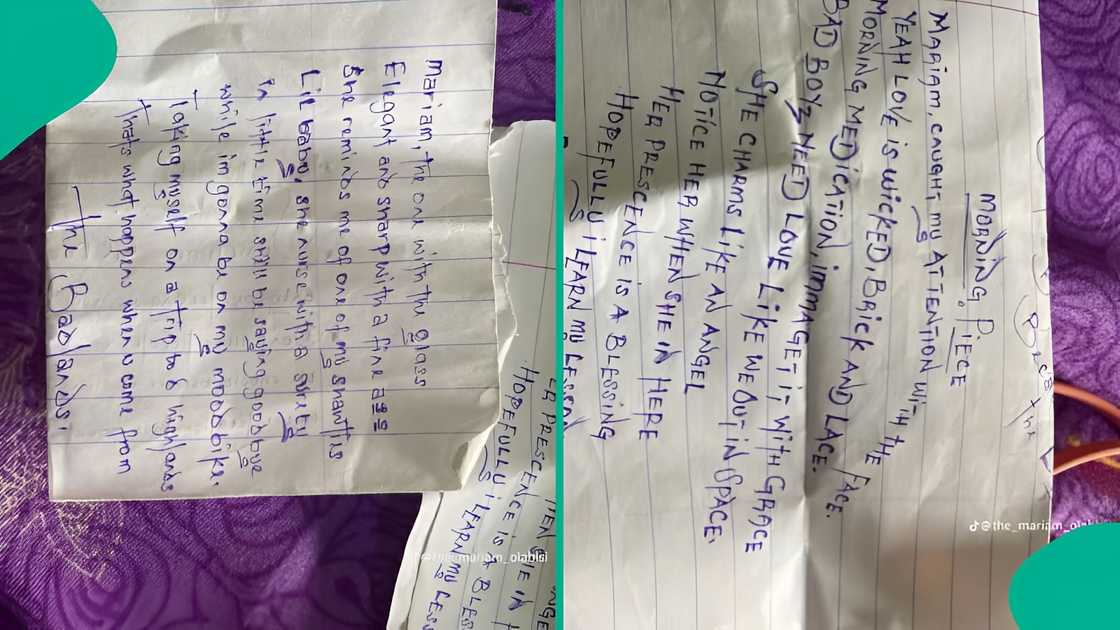 Mariam, the one with the glass
Elegant and sharp with a fine a
She reminds me of one of my shantiis
Lil baby, she nurse with a surety
In little time still be saying goodbye
While im gonna be on my moodbike.
Taking myself on a trip to d highlands
Thats what happens when u come from
The Badlands.
ER PRESCENCE IS A BLES
HOPEFULLY I LEARN MY LESS
MORNING PIECE
MARIAM, CAUGHT MY ATTENTION WITH THE FACE.
YEAH LOVE IS WICKED, BRICK AND LACE.
MORNING MEDICATION, IMMAGE IT WITH GRACE
BAD BOYZ NEED LOVE LIKE WE OUT IN SPACE.
SHE CHARMS LIKE AN ANGEL
NOTICE HER WHEN SHE IN HERE
HER PRESCENCE IS A BLESSING
HOPEFULLY I LEARN MY LESSON
@the_mariam_olabisi